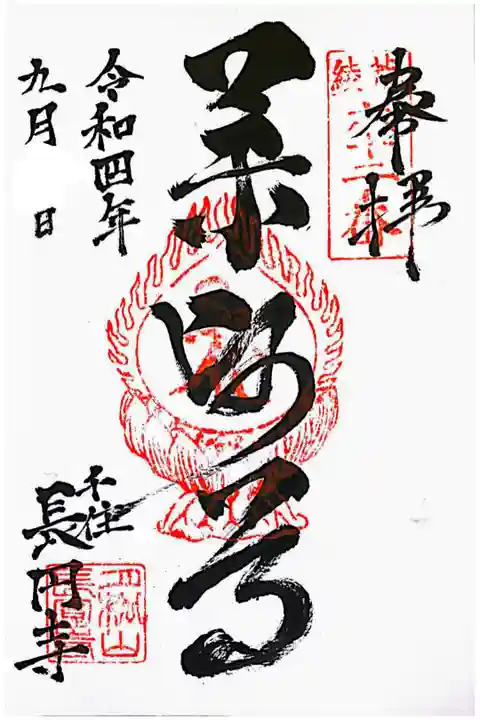 奉拝
薬師尊
令和四年
九月 日
千住
長円寺